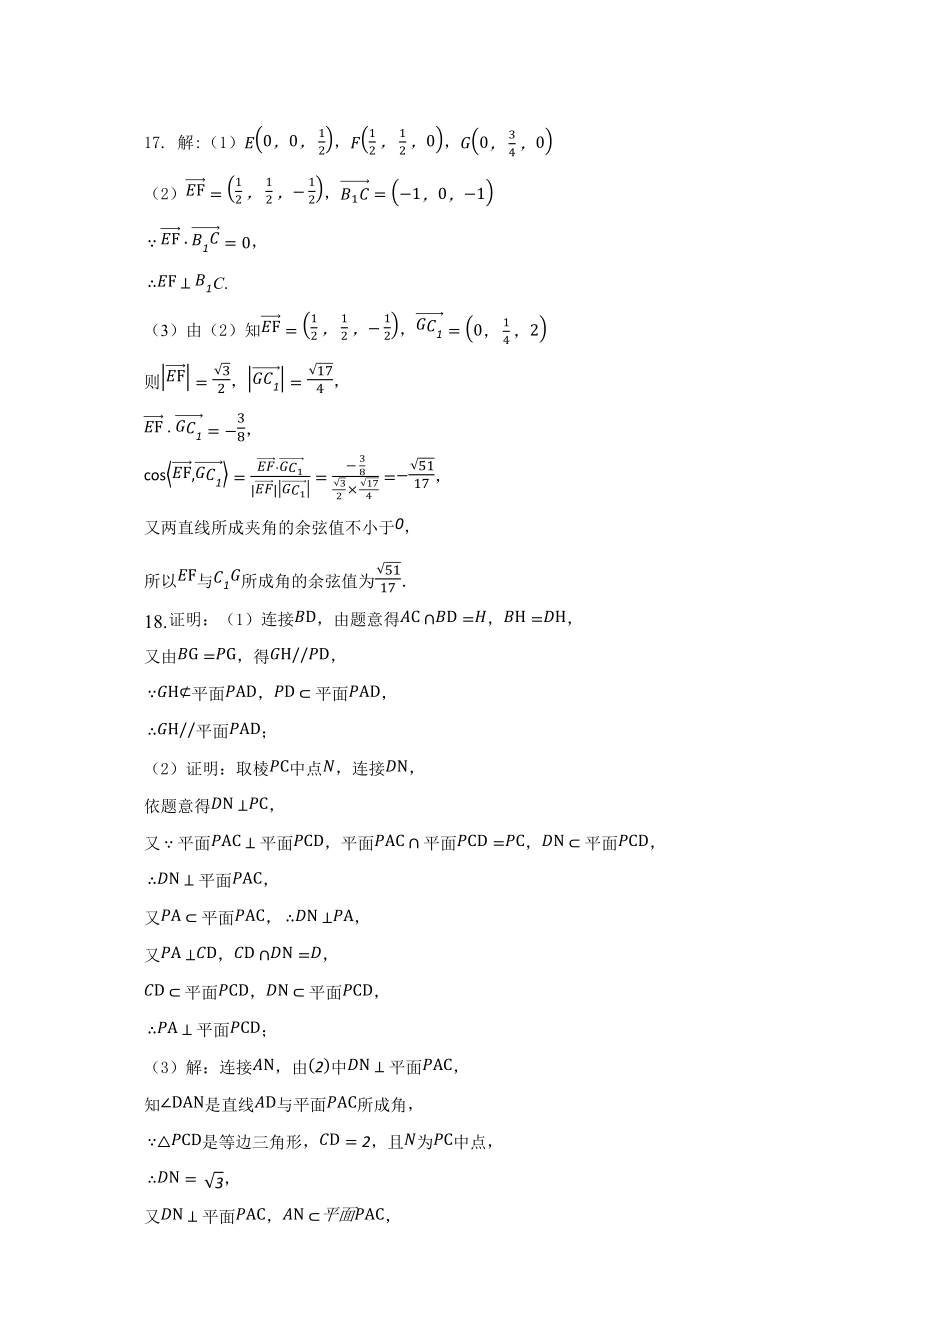 17. 解:（1）E(0，0，1/2)，F(1/2，1/2，0)，G(0，3/4，0)
（2）\overrightarrow{EF} = (1/2，1/2，−1/2)，\overrightarrow{B_1C} = (−1，0，−1)
∵ \overrightarrow{EF} · \overrightarrow{B_1C} = 0，
∴EF ⊥ B_1C.
（3）由（2）知\overrightarrow{EF} = (1/2，1/2，−1/2)，\overrightarrow{GC_1} = (0，1/4，2)
则|\overrightarrow{EF}| = \frac{√3}{2}，|\overrightarrow{GC_1}| = \frac{√17}{4}，
\overrightarrow{EF} · \overrightarrow{GC_1} = −3/8，
cos⟨\overrightarrow{EF},\overrightarrow{GC_1}⟩ = \frac{\overrightarrow{EF}·\overrightarrow{GC_1}}{|\overrightarrow{EF}||\overrightarrow{GC_1}|} = \frac{−3/8}{\frac{√3}{2}×\frac{√17}{4}} =−\frac{√51}{17}，
又两直线所成夹角的余弦值不小于0，
所以EF与C_1G所成角的余弦值为\frac{√51}{17}.
18.证明：（1）连接BD，由题意得AC ∩BD =H，BH =DH，
又由BG =PG，得GH//PD，
∵GH⊄平面PAD，PD ⊂ 平面PAD，
∴GH//平面PAD；
（2）证明：取棱PC中点N，连接DN，
依题意得DN ⊥PC，
又 ∵ 平面PAC ⊥ 平面PCD，平面PAC ∩ 平面PCD =PC，DN ⊂ 平面PCD，
∴DN ⊥ 平面PAC，
又PA ⊂ 平面PAC，∴DN ⊥PA，
又PA ⊥CD，CD ∩DN =D，
CD ⊂ 平面PCD，DN ⊂ 平面PCD，
∴PA ⊥ 平面PCD；
（3）解：连接AN，由(2)中DN ⊥ 平面PAC，
知∠DAN是直线AD与平面PAC所成角，
∵△PCD是等边三角形，CD = 2，且N为PC中点，
∴DN = √3，
又DN ⊥ 平面PAC，AN ⊂平面PAC，